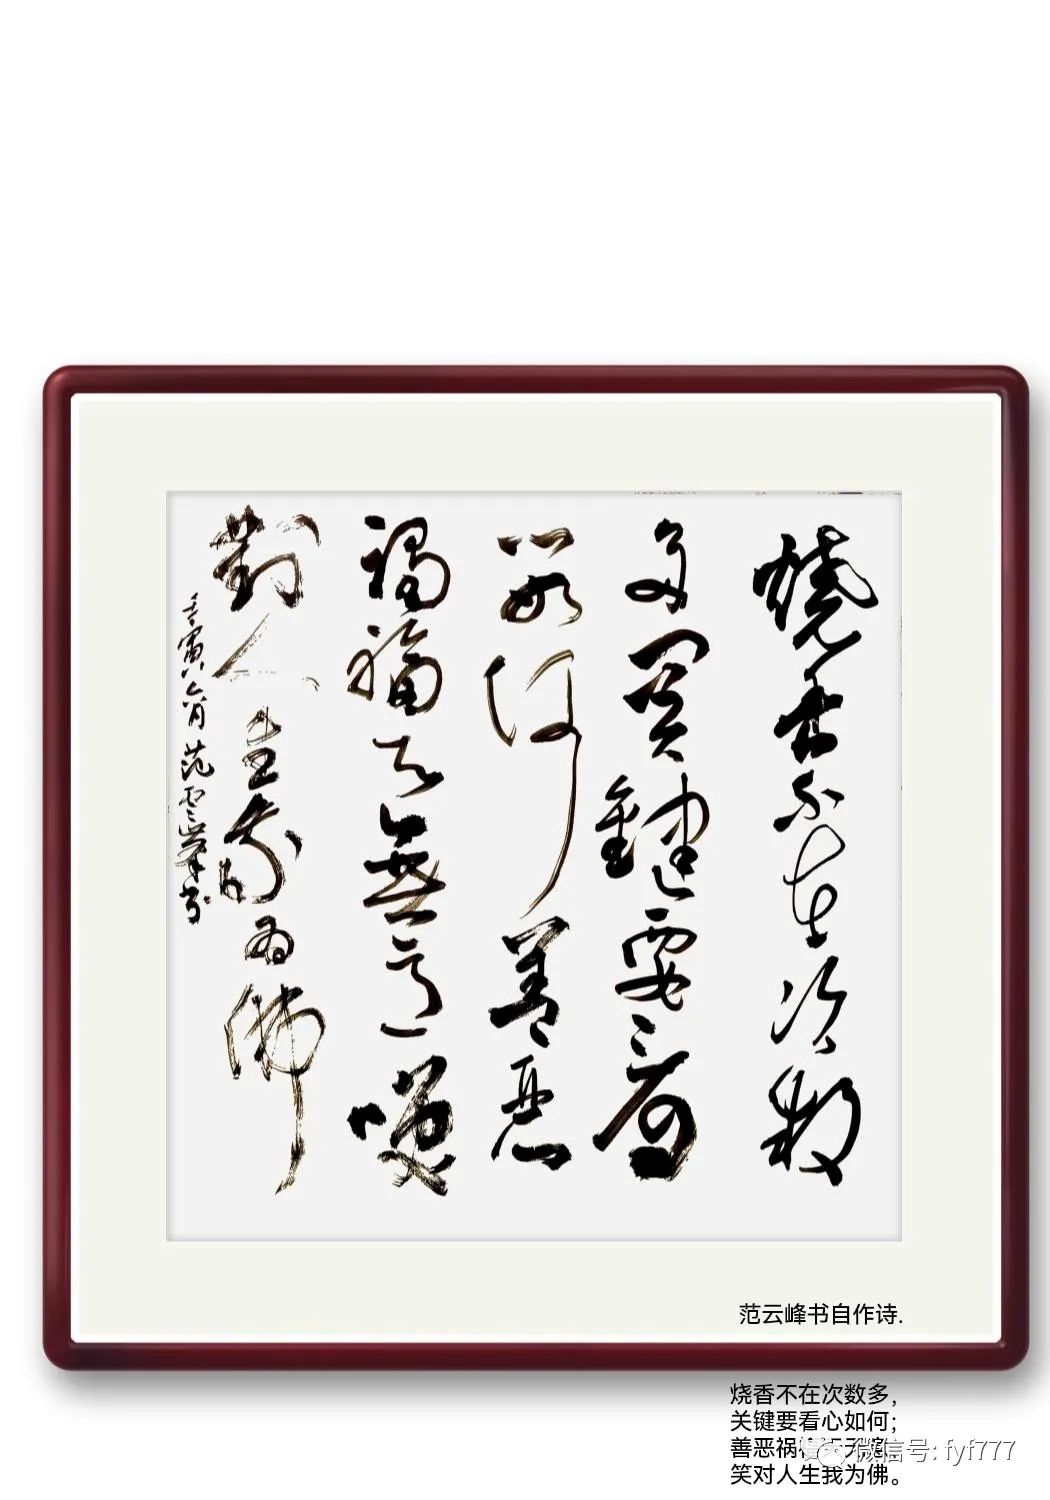 燒香不在次数
多關键要看
心如何善惡
禍福天無
對人生我為佛
壬寅 范雲峯书
范云峰书自作诗.
烧香不在次数多，
关键要看心如何；
善恶祸
笑对人生我为佛。
微信号: fyf777